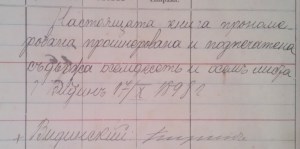 Настоящата книга прономе-
рована прошнорована и подпечатена
съдържа осемдесеть и осемь листа
Видинъ 17/X 1898 г
Видинский